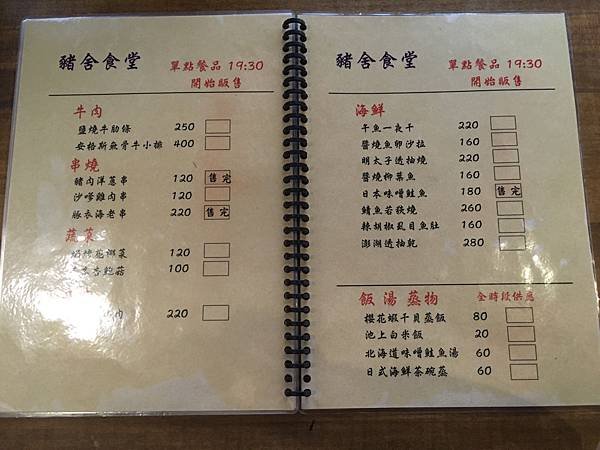 豬舍食堂
單點餐品 19:30
開始販售
牛肉
鹽燒牛肋條 250
安格斯無骨牛小排 400
串燒
豬肉洋蔥串 120 售完
沙嗲雞肉串 120
豚衣海老串 220 售完
蔬菜
花椰菜 120
杏鮑菇 100
肉 220
豬舍食堂
單點餐品 19:30
開始販售
海鮮
午魚一夜干 220
醬燒魚卵沙拉 160
明太子透抽燒 220
醬燒柳葉魚 160
日本味噌鮭魚 180 售完
鯖魚若狹燒 260
辣胡椒虱目魚肚 160
澎湖透抽乾 280
飯 湯 蒸物 全時段供應
櫻花蝦干貝蒸飯 80
池上白米飯 20
北海道味噌鮭魚湯 60
日式海鮮茶碗蒸 60